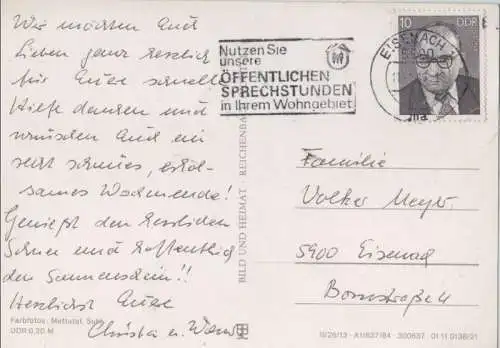 Wir möchten Euch
Lieben ganz herzlich
für Eure schnelle
Hilfe danken und
wünschen Euch ein
sehr schönes, erhol-
sames Wochenende!
Genießt den herrlichen
Schnee und hoffentlich
den Sonnenschein!!
Herzlichst Eure
Christa u.
Farbfotos: Mattstet, Suhl
DDR 0,20 M
BILD UND HEIMAT REICHENBACH
Nutzen Sie
unsere
ÖFFENTLICHEN
SPRECHSTUNDEN
in Ihrem Wohngebiet
EISENACH
5900
10 DDR
Familie
Volker Meyer
5900 Eisenach
Bornstraße 4
A1/637/84 300637 01 11 0138/21